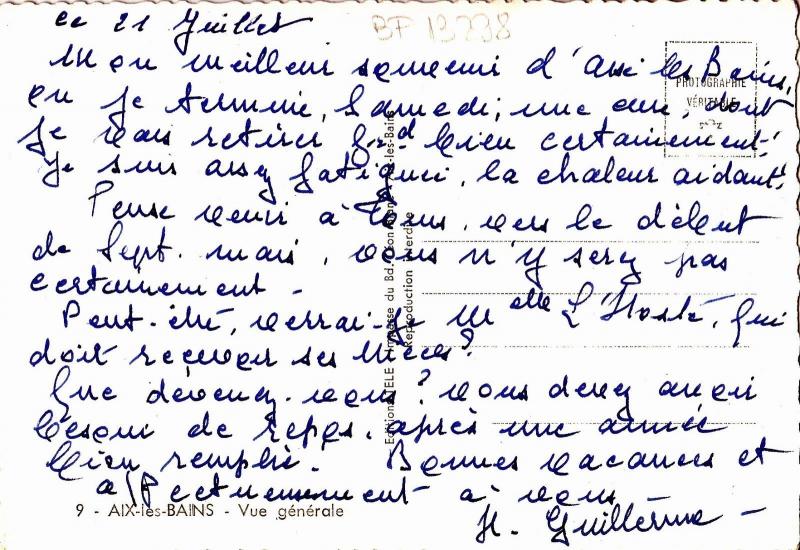 ce 21 Juillet
BF 13238
Mon meilleur souvenir d'Aix les Bains,
PHOTOGRAPHIE
VÉRITABLE
où je termine, Samedi, une cure, dont
je vais retirer grd bien certainement!
je suis assez fatiguée, la chaleur aidant!
Pense venir à vers le début
de Sept. mais, vous n'y serez pas
certainement -
Peut-être, verrai-je Melle L'Hosté, qui
doit recevoir ses nièces?
Que devenez-vous? vous devez avoir
besoin de repos, après une année
bien remplie. Bonnes vacances et
aff ectueusement à vous
H. Guillerme -
9 - AIX-les-BAINS - Vue générale
Reproduction interdite